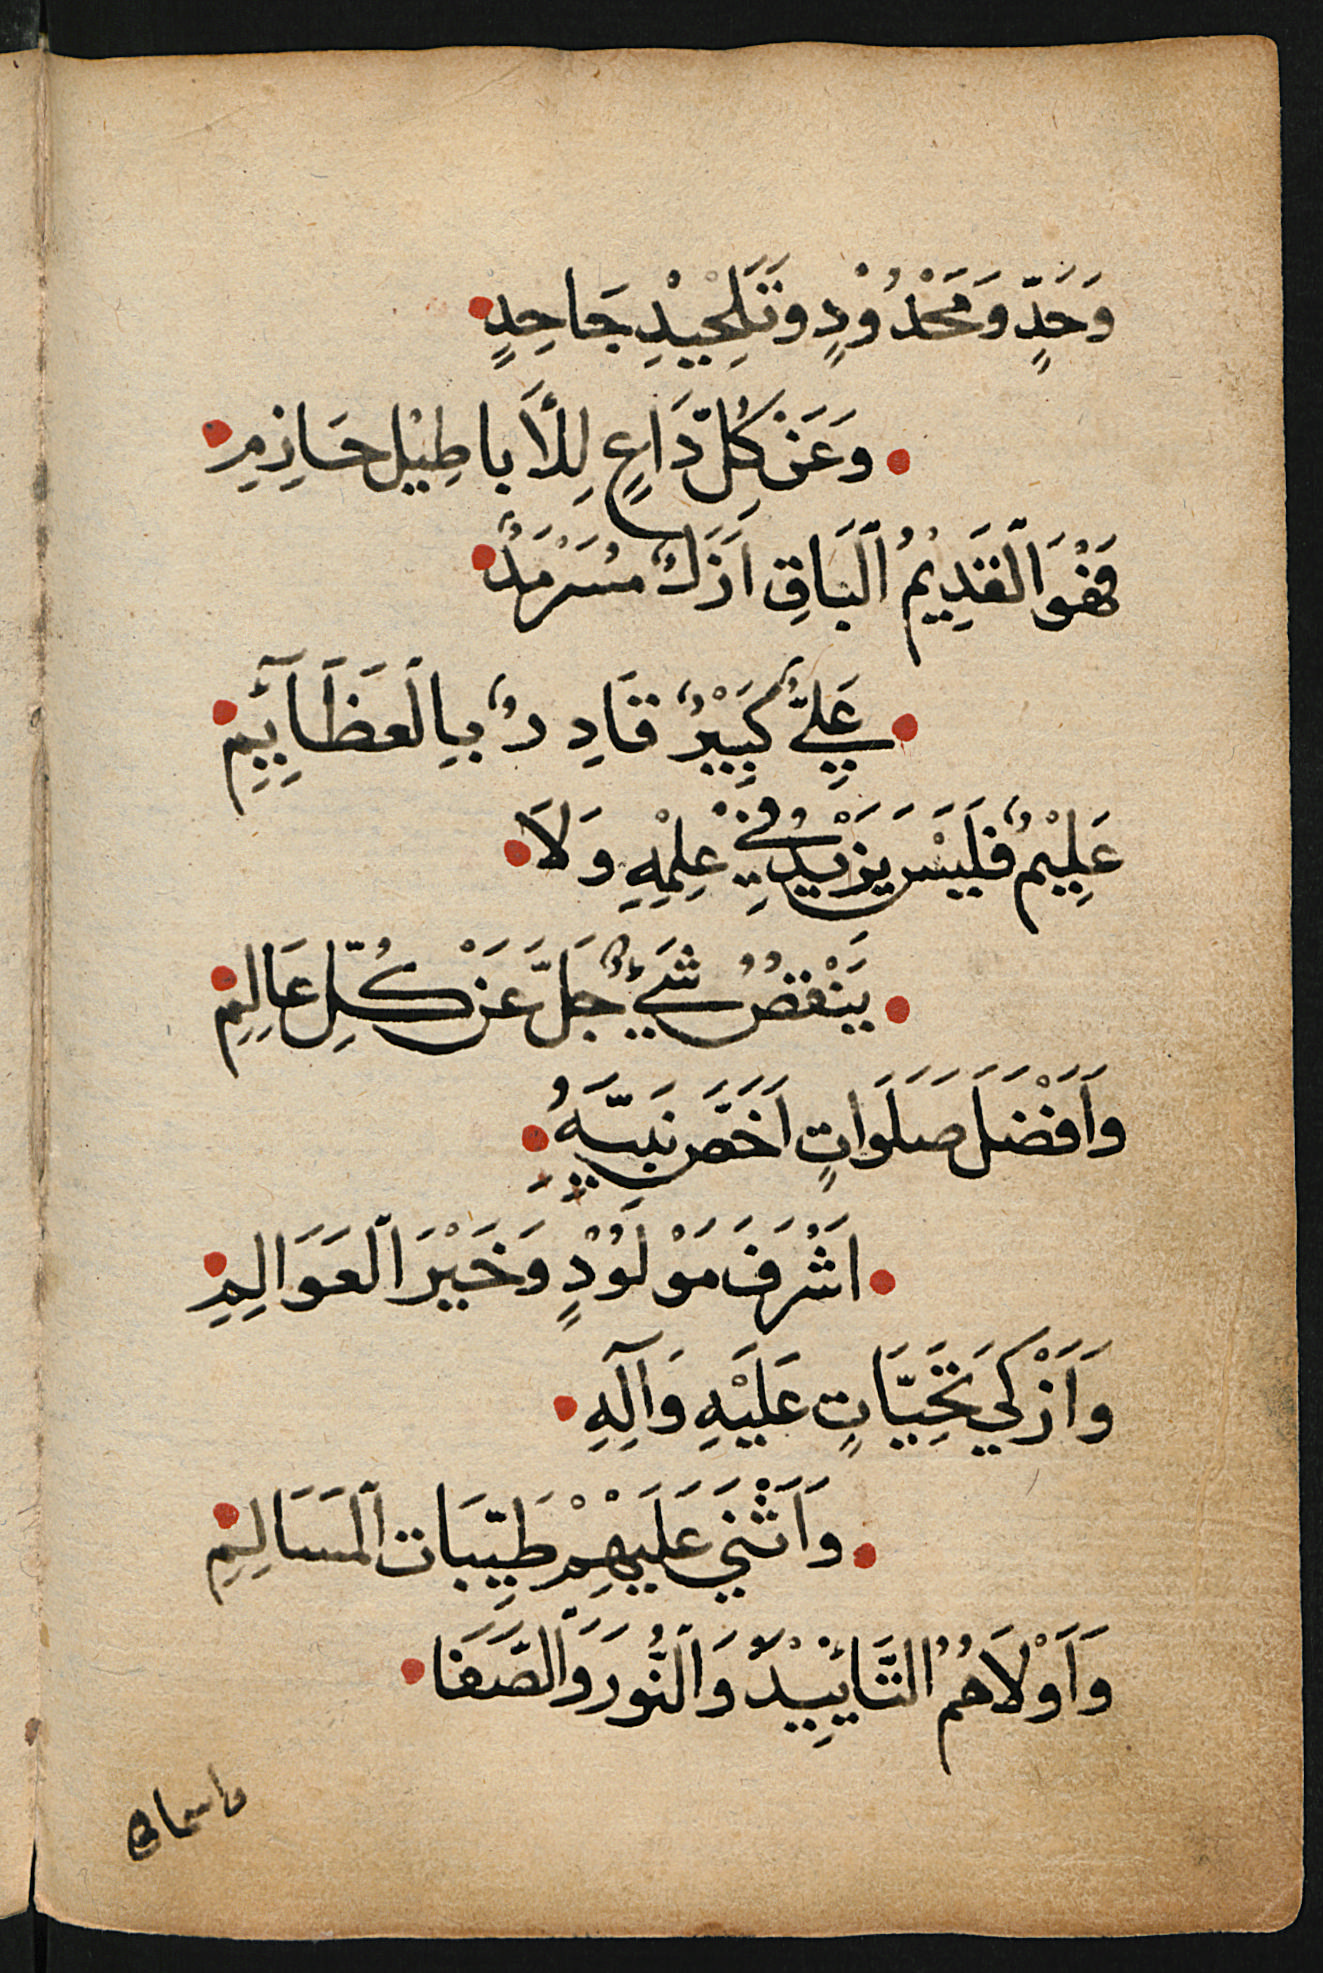 وَحَدٍّ وَمَحْدُوْدٍ وَتَلْحِيْدِ جَاحِدٍ
وَعَنْ كُلِّ دَاعٍ لِلْأَبَاطِيْلِ حَازِمِ
فَهْوَ الْقَدِيْمُ الْبَاقِ اَزَلٌ مُسَرْمَدٌ
عَلِيٌّ كَبِيْرٌ قَادِرٌ بِالْعَظَآئِمِ
عَلِيْمٌ فَلَيْسَ يَزْيْدُ فِيْ عِلْمِهِ وَلَا
يَنْقُصُ شَيْءٌ جَلَّ عَنْ كُلِّ عَالِمِ
وَاَفْضَلَ صَلَوَاتٍ اَخَصَّ نَبِيَّهُ
اَشْرَفَ مَوْلُوْدٍ وَخَيْرَ الْعَوَالِمِ
وَاَزْكَي تَحِيَّاتٍ عَلَيْهِ وَآلِهِ
وَاَثْنَي عَلَيْهِمْ طَيِّبَات الْمَسَالِمِ
وَاَوْلَاهُمُ التَّائِيْدَ وَالنُّوْرَ وَالصَّفَا